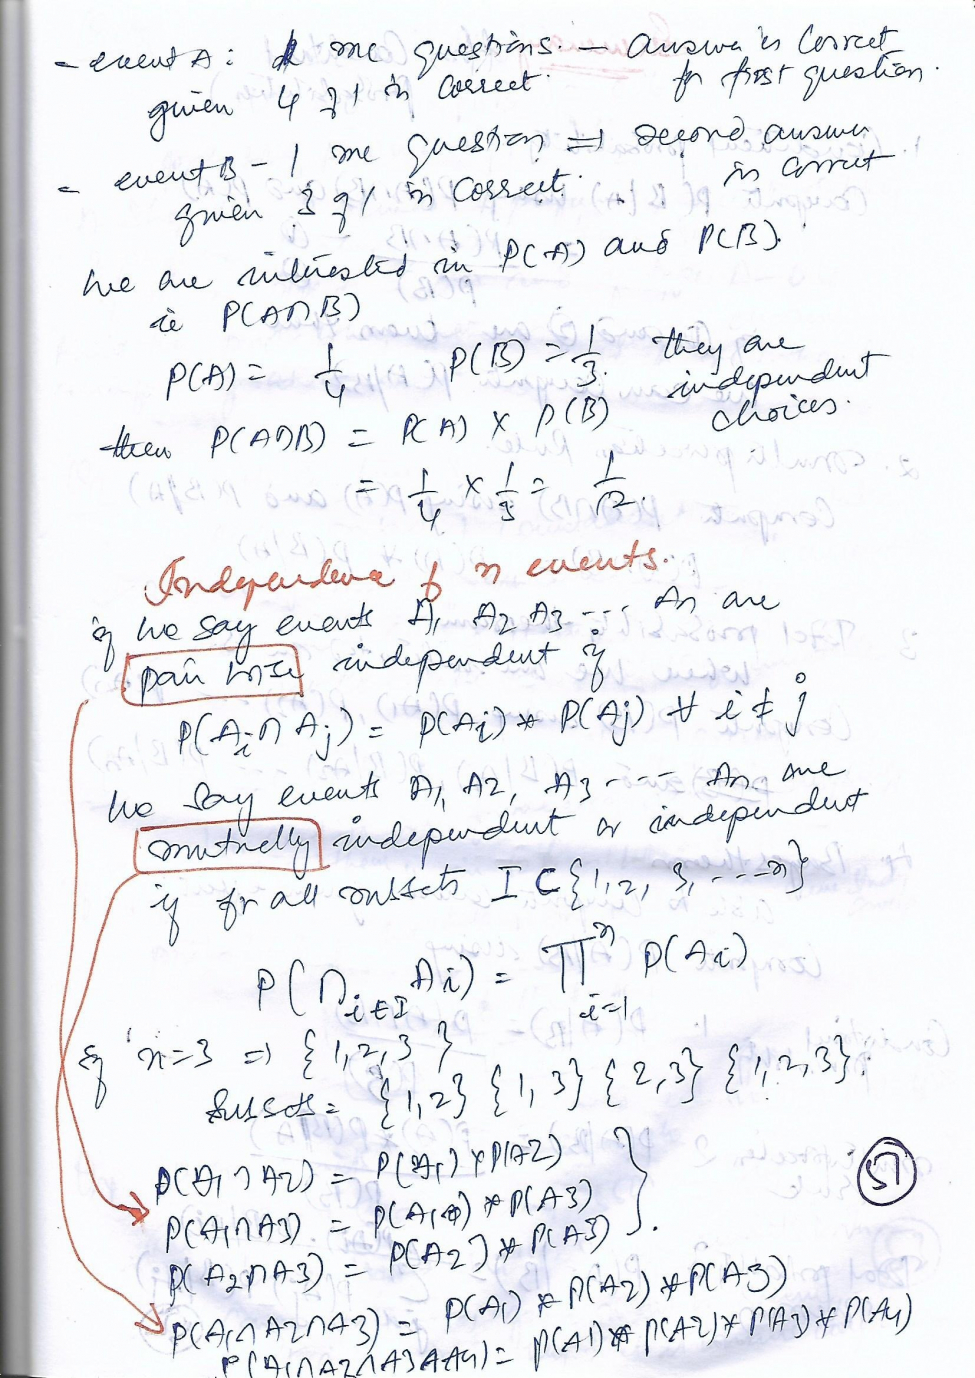 - event A: 1 mc questions. - answer is correct
given 4 of 1 is correct. for first question.
- event B - 1 mc question => second answer
given 3 of 1 is correct. is correct
We are interested in P(A) and P(B).
ie P(A∩B)
P(A) = 1/4 P(B) = 1/3. they are
independent
choices.
then P(A∩B) = P(A) x P(B)
= 1/4 x 1/3 = 1/12.
Independence of n events.
if we say events A1 A2 A3 --- An are
pair wise independent if
P(Ai ∩ Aj) = P(Ai) * P(Aj) ∀ i ≠ j
We say events A1, A2, A3 --- An are
mutually independent or independent
if for all subsets I ⊂ {1, 2, 3, ---n}
P(∩i∈I Ai) = ∏ⁿi=1 P(Ai)
if n=3 => {1,2,3}
Subsets = {1,2} {1,3} {2,3} {1,2,3}.
P(A1∩A2) = P(A1) x P(A2)
P(A1∩A3) = P(A1) * P(A3)
P(A2∩A3) = P(A2) * P(A3)
P(A1∩A2∩A3) = P(A1) * P(A2) * P(A3)
P(A1∩A2∩A3∩A4) = P(A1) * P(A2) * P(A3) * P(A4)